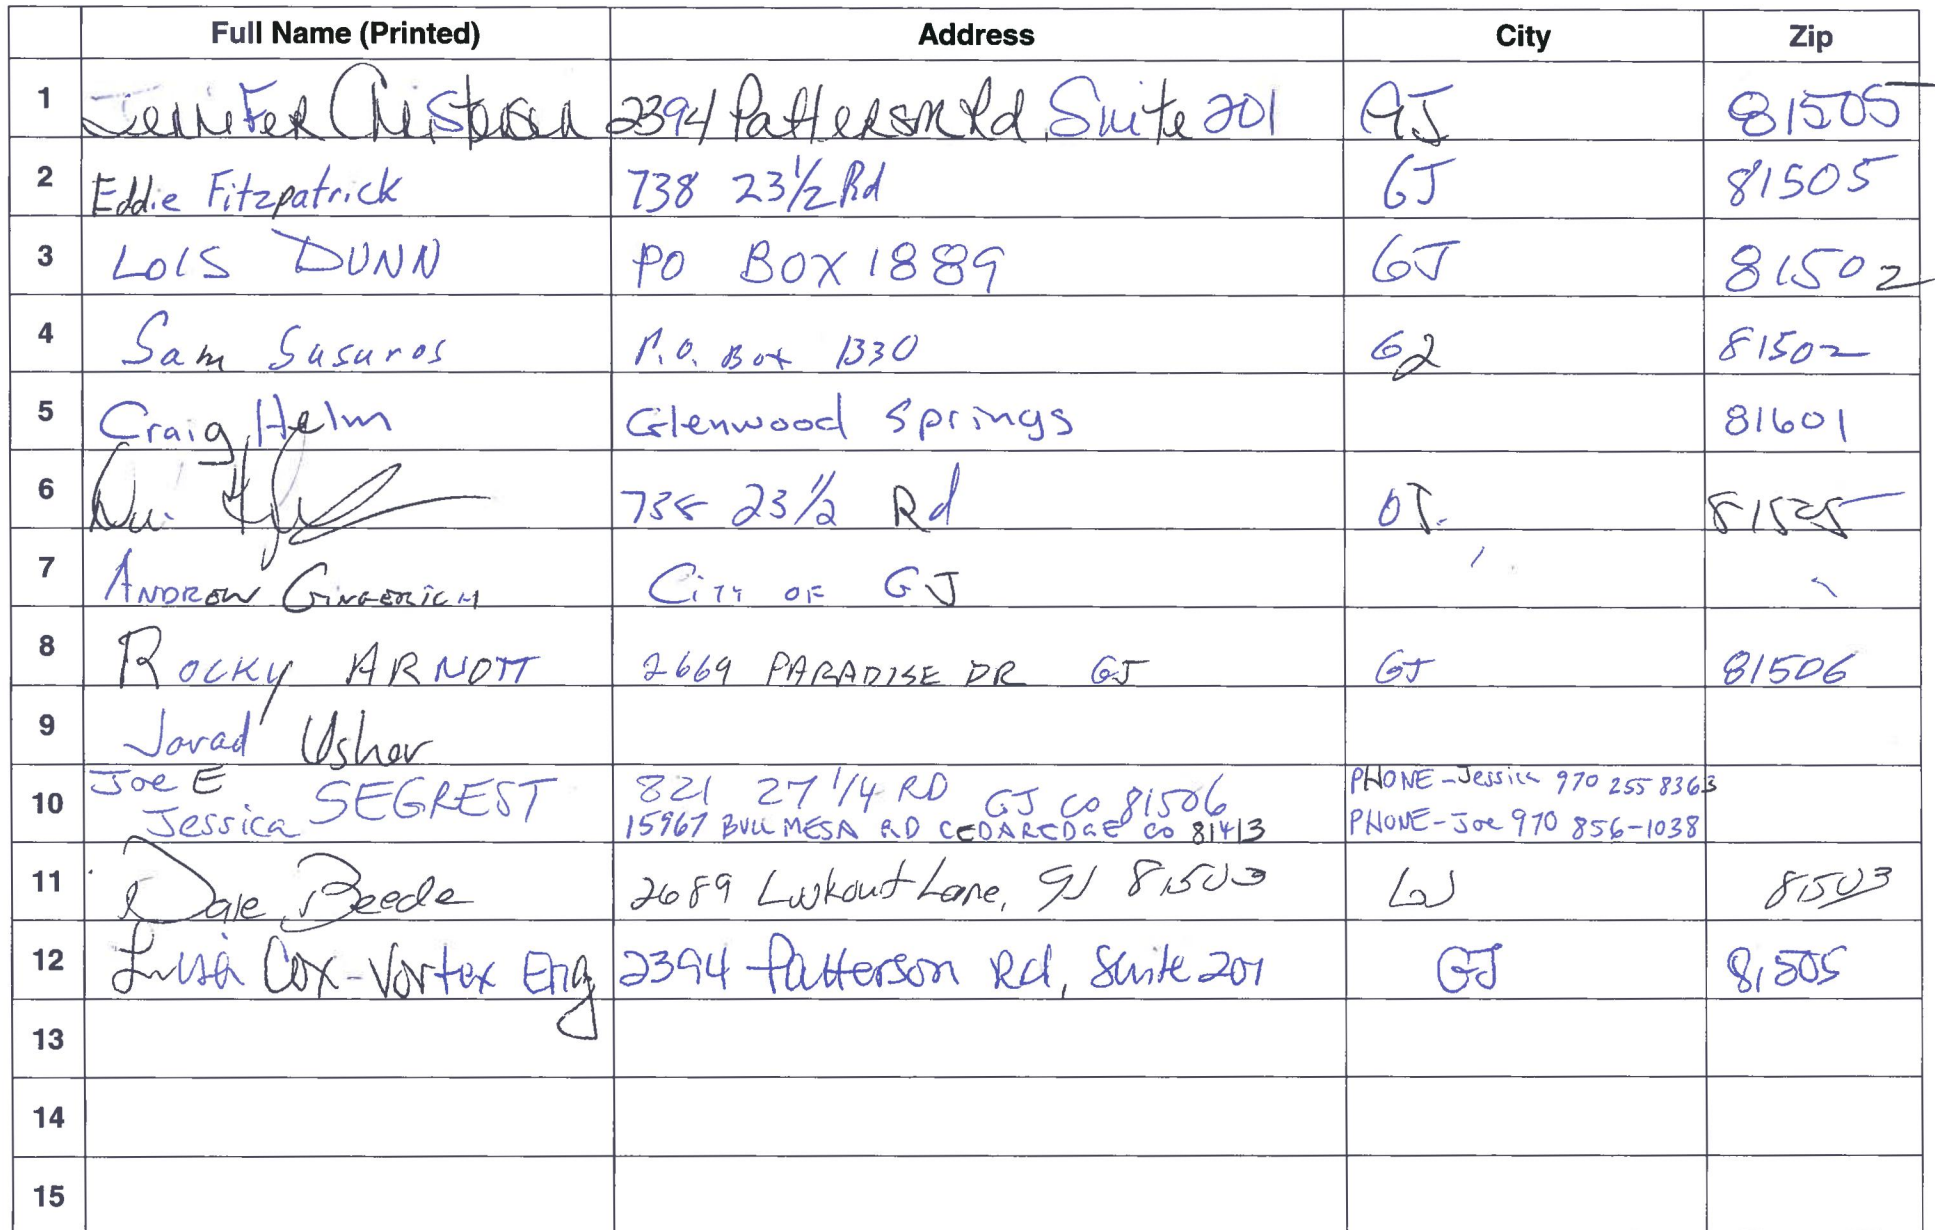 Full Name (Printed) Address City Zip
1 Jennifer Christensen 2394 Patterson Rd Suite 201 GJ 81505
2 Eddie Fitzpatrick 738 23 1/2 Rd GJ 81505
3 LOIS DUNN PO BOX 1889 GJ 81502
4 Sam Susuros P.O. Box 1330 GJ 81502
5 Craig Helm Glenwood Springs 81601
6 738 23 1/2 Rd
7 ANDREW GINGERICH CITY OF GJ
8 ROCKY ARNOTT 2669 PARADISE DR GJ GJ 81506
9 Usher
10 Joe E Jessica SEGREST 821 27 1/4 RD GJ CO 81506 PHONE-Jessica 970 255 8363
15967 BULL MESA RD CEDAREDGE CO 81413 PHONE-Joe 970 856-1038
11 Dale Beede 2689 Lookout Lane, GJ 81503 GJ 81503
12 Lisa Cox-Vortex Eng 2394 Patterson Rd, Suite 201 GJ 81505
13
14
15